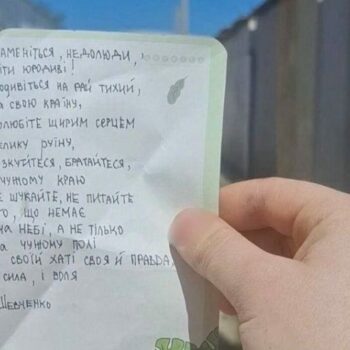 АМЕНІТЬСЯ, НЕДОЛЮДИ,
ІТИ ЮРОДИВІ!
ОДИВІТЬСЯ НА РАЙ ТИХИЙ,
А СВОЮ КРАЇНУ,
ОЛЮБІТЕ ЩИРИМ СЕРЦЕМ
ЕЛИКУ РУЇНУ,
ЗКУЙТЕСЯ, БРАТАЙТЕСЯ,
ЧУЖОМУ КРАЮ
Е ШУКАЙТЕ, НЕ ПИТАЙТЕ
ГО, ЩО НЕМАЄ
НА НЕБІ, А НЕ ТІЛЬКО
А ЧУЖОМУ ПОЛІ
СВОЇЙ ХАТІ СВОЯ Й ПРАВДА,
СИЛА, І ВОЛЯ
ШЕВЧЕНКО